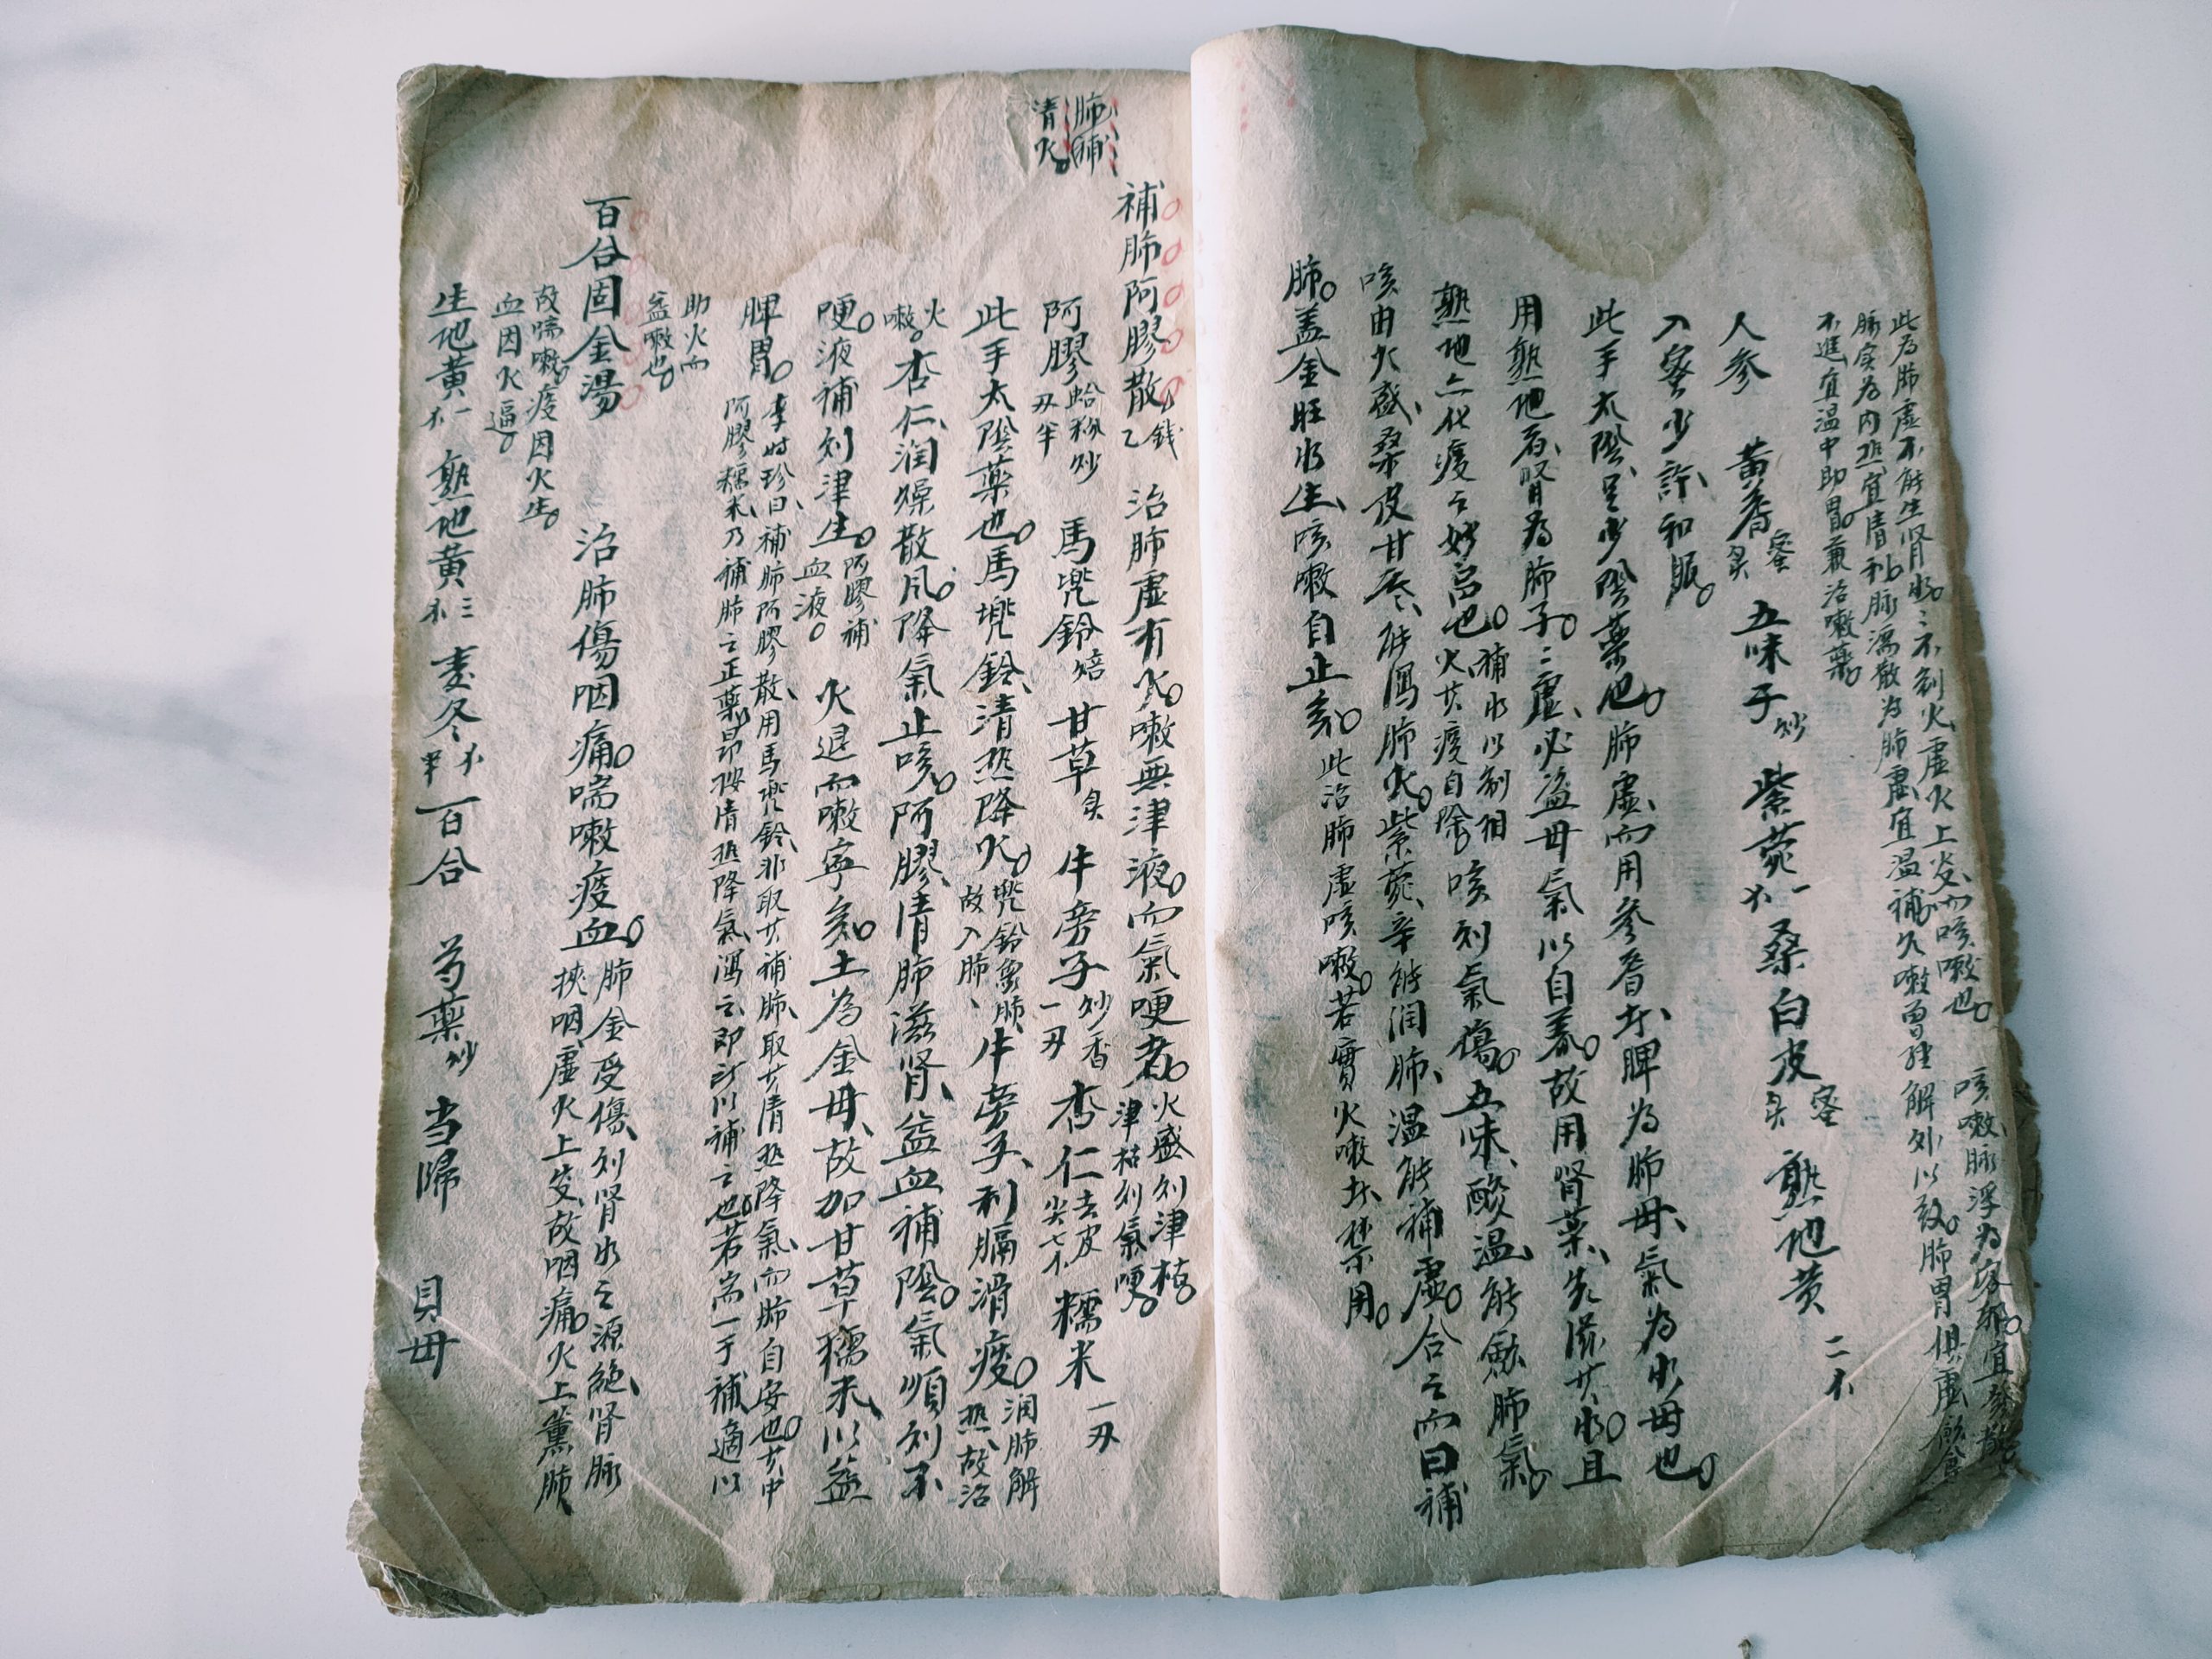 此為肺虛不能生肾水水不制火虛火上炎而咳嗽也咳嗽脉浮為客邪宜發散
脉實為内热宜清利脉濡散為肺虛宜温補久嗽曽经解利以致肺胃俱虛飲食
不進宜温中助胃兼治嗽藥
人參 黃耆蜜炙 五味子炒 紫菀不一 桑白皮蜜炙 熟地黄二不
入蜜少許和服
此手太陰足少陰藥也肺虛而用參耆者脾為肺母氣為水母也
用熟地者肾為肺子子虛必盗母氣以自養故用肾藥先滋其水且
熟地亦化痰之妙品也補水以制相火其痰自除咳則氣傷五味酸温能歛肺氣
咳由火盛桑皮甘寒能瀉肺火紫菀辛能润肺温能補虛合之而曰補
肺盖金旺水生咳嗽自止矣此治肺虛咳嗽若實火嗽者禁用
肺補
清火
補肺阿膠散錢乙 治肺虛有火嗽無津液而氣哽者火盛則津枯津枯則氣哽
阿膠蛤粉炒刄半 馬兜鈴焙 甘草炙 牛旁子炒香一刄 杏仁去皮尖七不 糯米一刄
此手太陰藥也馬兜鈴清热降火兜鈴象肺故入肺牛旁子利膈滑痰润肺解热故治
火嗽杏仁润燥散风降氣止咳阿膠清肺滋肾益血補陰氣順則不
哽液補則津生阿膠補血液火退而嗽寧矣土為金母故加甘草糯米以益
脾胃李时珍曰補肺阿膠散用馬兜鈴非取其補肺取其清热降氣而肺自安也其中
阿膠糯米乃補肺之正藥昂按清热降氣瀉之即所以補之也若耑一于補適以
助火而益嗽也
百合固金湯 治肺傷咽痛喘嗽痰血肺金受傷則肾水之源絶肾脉
挾咽虛火上炎故咽痛火上薰肺
故喘嗽痰因火生
血因火逼
生地黄不二 熟地黄不三 麦冬不半 百合 芍藥炒 当歸 貝母